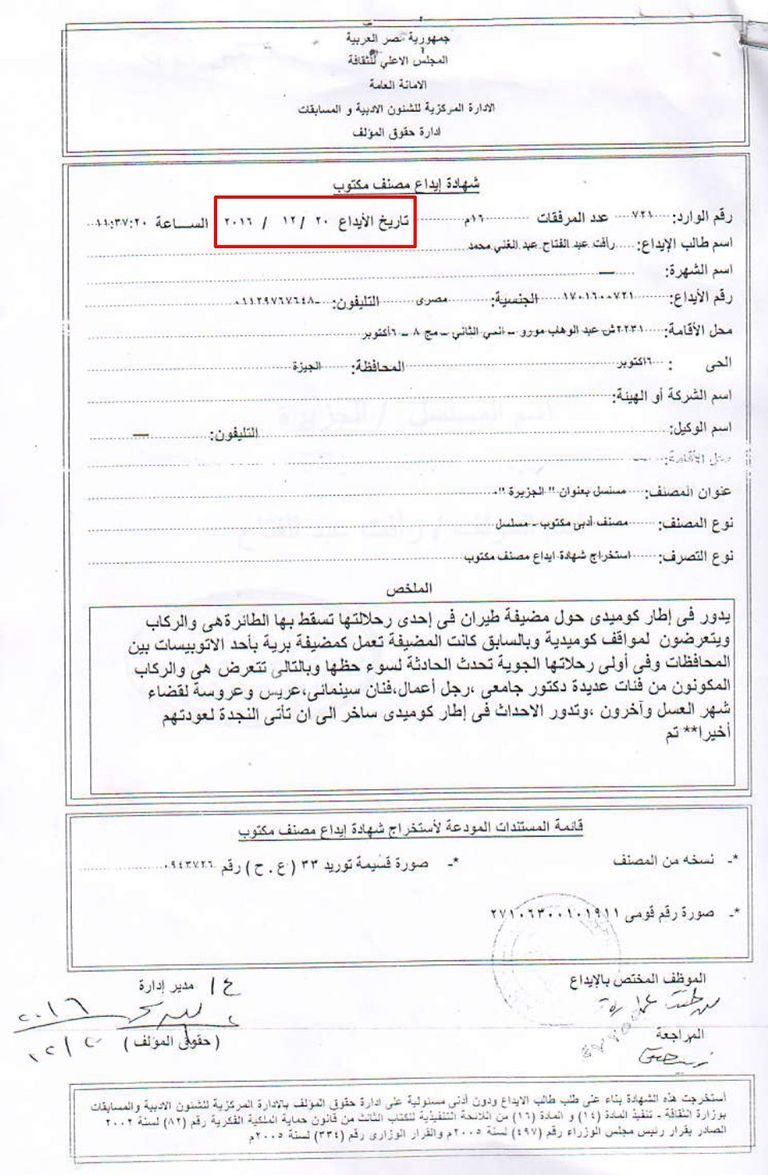 جمهورية مصر العربية
المجلس الاعلي للثقافة
الامانة العامة
الادارة المركزية للشئون الادبية و المسابقات
ادارة حقوق المؤلف
شهادة إيداع مصنف مكتوب
رقم الوارد: ٧٢١ عدد المرفقات ١٦م تاريخ الأيداع ٢٠ / ١٢ / ٢٠١٦ الساعة ١١:٣٧:٢٠
اسم طالب الإيداع: رأفت عبد الفتاح عبد الغني محمد
اسم الشهرة: —
رقم الأيداع: ١٧٠١٦٠٠٧٢١ الجنسية: مصرى التليفون: ٠١١٢٩٧٦٧٦٤٨
محل الأقامة: ٢٢٣١ش عبد الوهاب مورو – الحي الثاني – مج ٨ – ٦أكتوبر
الحى : ٦اكتوبر المحافظة: الجيزة
اسم الشركة أو الهيئة:
اسم الوكيل: التليفون: —
محل الأقامة: —
عنوان المصنف: مسلسل بعنوان " الجزيرة "
نوع المصنف: مصنف أدبى مكتوب - مسلسل
نوع التصرف: استخراج شهادة ايداع مصنف مكتوب
الملخص
يدور فى إطار كوميدى حول مضيفة طيران فى إحدى رحلالتها تسقط بها الطائرة هى والركاب
ويتعرضون لمواقف كوميدية وبالسابق كانت المضيفة تعمل كمضيفة برية بأحد الاتوبيسات بين
المحافظات وفى أولى رحلاتها الجوية تحدث الحادثة لسوء حظها وبالتالى تتعرض هى والركاب
المكونون من فئات عديدة دكتور جامعى ،رجل أعمال،فنان سينمائى،عريس وعروسة لقضاء
شهر العسل وآخرون ،وتدور الاحداث فى إطار كوميدى ساخر الى ان تأتى النجدة لعودتهم
أخيرا** تم
قائمة المستندات المودعة لأستخراج شهادة إيداع مصنف مكتوب
*- نسخه من المصنف *- صورة قسيمة توريد ٣٣ ( ع . ح ) رقم ٠٩٤٣٧٢٦
*- صورة رقم قومى ٢٧١٠٦٣٠٠١٠١٩١١
الموظف المختص بالإيداع ع / مدير إدارة
٢٠١٦
المراجعة ( حقوق المؤلف ) ١٢/٢٠
أستخرجت هذه الشهادة بناء على طلب طالب الايداع ودون أدنى مسئولية على ادارة حقوق المؤلف بالادارة المركزية للشئون الادبية والمسابقات
بوزارة الثقافة - تنفيذ المادة (١٤) و المادة (١٦) من اللائحة التنفيذية للكتاب الثالث من قانون حماية الملكية الفكرية رقم (٨٢) لسنة ٢٠٠٢
الصادر بقرار رئيس مجلس الوزراء رقم (٤٩٧) لسنة ٢٠٠٥م والقرار الوزارى رقم (٣٣٤) لسنة ٢٠٠٥م